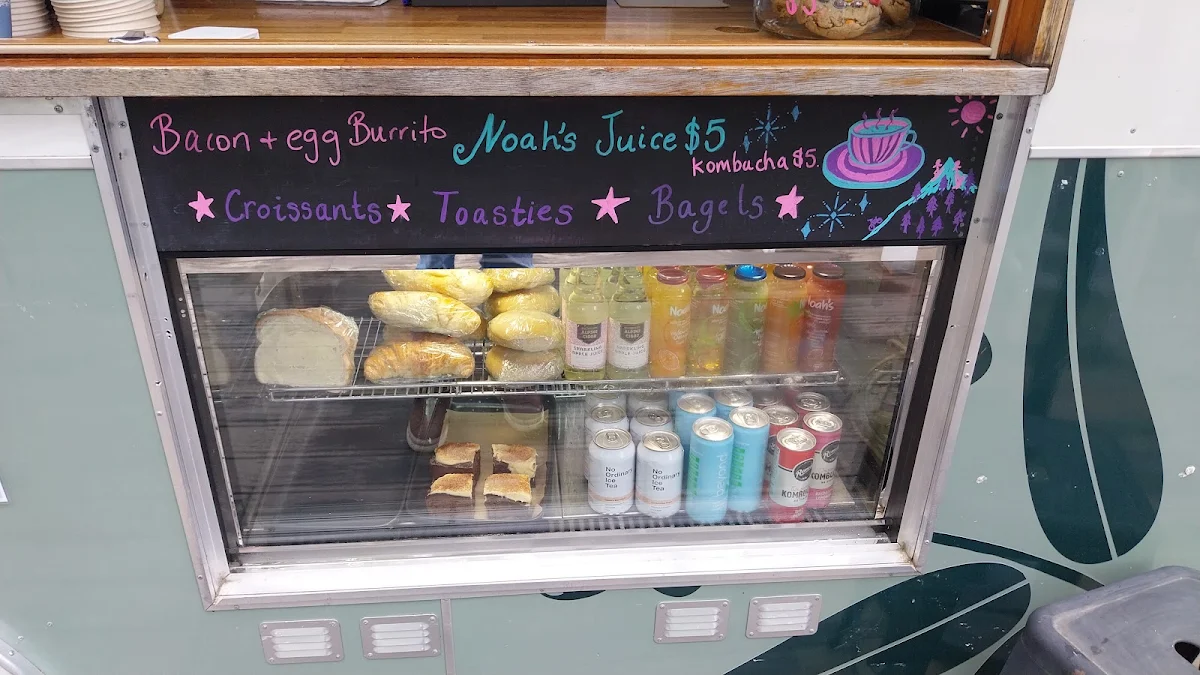 Bacon + egg Burrito Noah's Juice $5
kombucha $5.
Croissants Toasties Bagels
Noah's
No
Ordinary
Ice
Tea
No
Ordinary
Ice
Tea